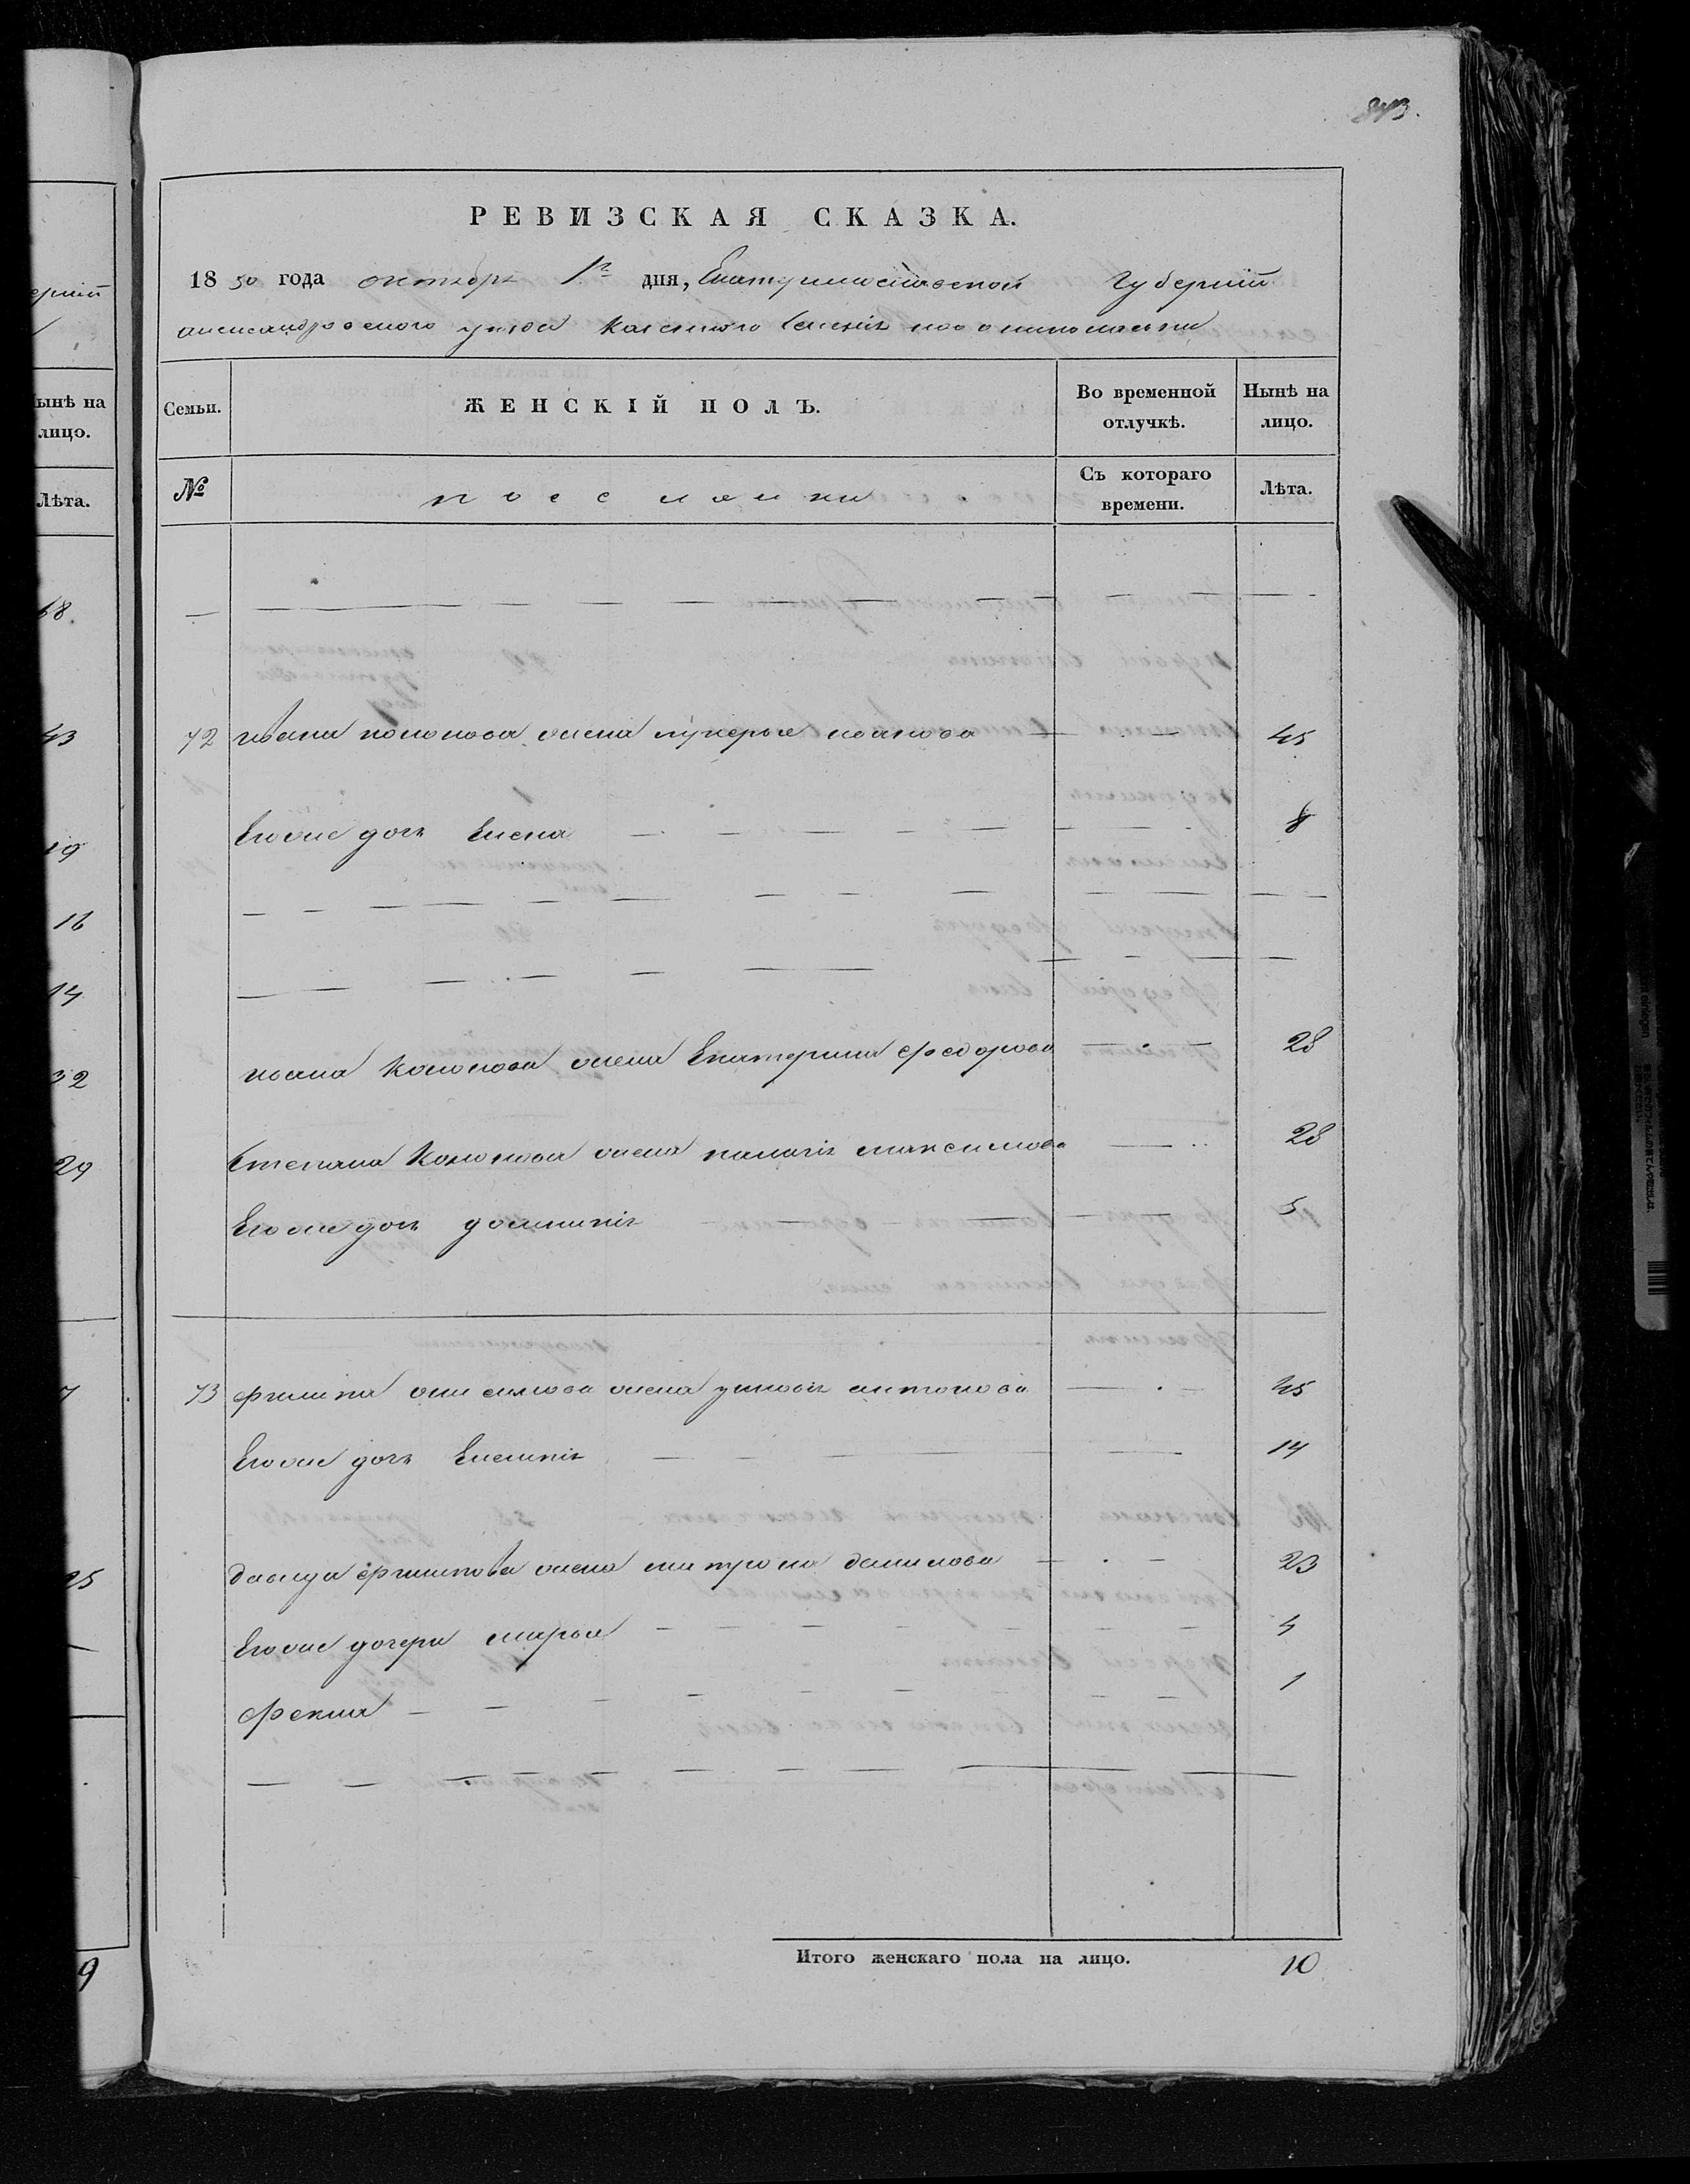 843.
РЕВИЗСКАЯ СКАЗКА.
1850 года октября 1го дня, Екатеринославской Губернии
александровского уезда Казенного Селения новониколаевки
Семьи. ЖЕНСКІЙ ПОЛЪ. Во временной отлучкѣ. Нынѣ на лицо.
№ Съ котораго времени. Лѣта.
72 ивана кононова жена лукерья иванова 45
Его же дочь Елена 8
ивана Кононова жена Екатерина федорова 28
Степана Кононова жена палагия максимова 28
Его же дочь домникия 5
73 филипа анисимова жена улиовия антонова 45
Его же дочь Еликия 14
давида филипова жена матрона данилова 23
Его же дочери марья 4
фекла 1
Итого женскаго пола на лицо. 10
ерній
ынѣ на
лицо.
Лѣта.
68.
43
19
16
14
32
29
7
25
9